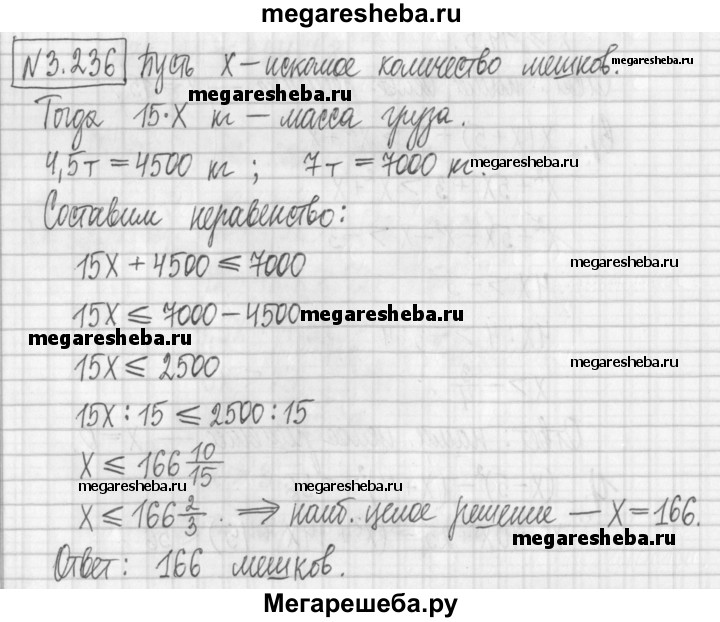 megaresheba.ru
N3.236 Пусть х – искомое количество мешков. megaresheba.ru
megaresheba.ru
Тогда 15·х кг – масса груза.
4,5т = 4500 кг ; 7т = 7000 кг. megaresheba.ru
Составим неравенство:
15х + 4500 ⩽ 7000 megaresheba.ru
15х ⩽ 7000 – 4500 megaresheba.ru
megaresheba.ru
15х ⩽ 2500 megaresheba.ru
15х : 15 ⩽ 2500 : 15
х ⩽ 166 10/15
megaresheba.ru megaresheba.ru megaresheba.ru
х ⩽ 166 2/3 . ⟹ наиб. целое решение – х = 166.
megaresheba.ru
Ответ: 166 мешков.
Мегарешеба.ру